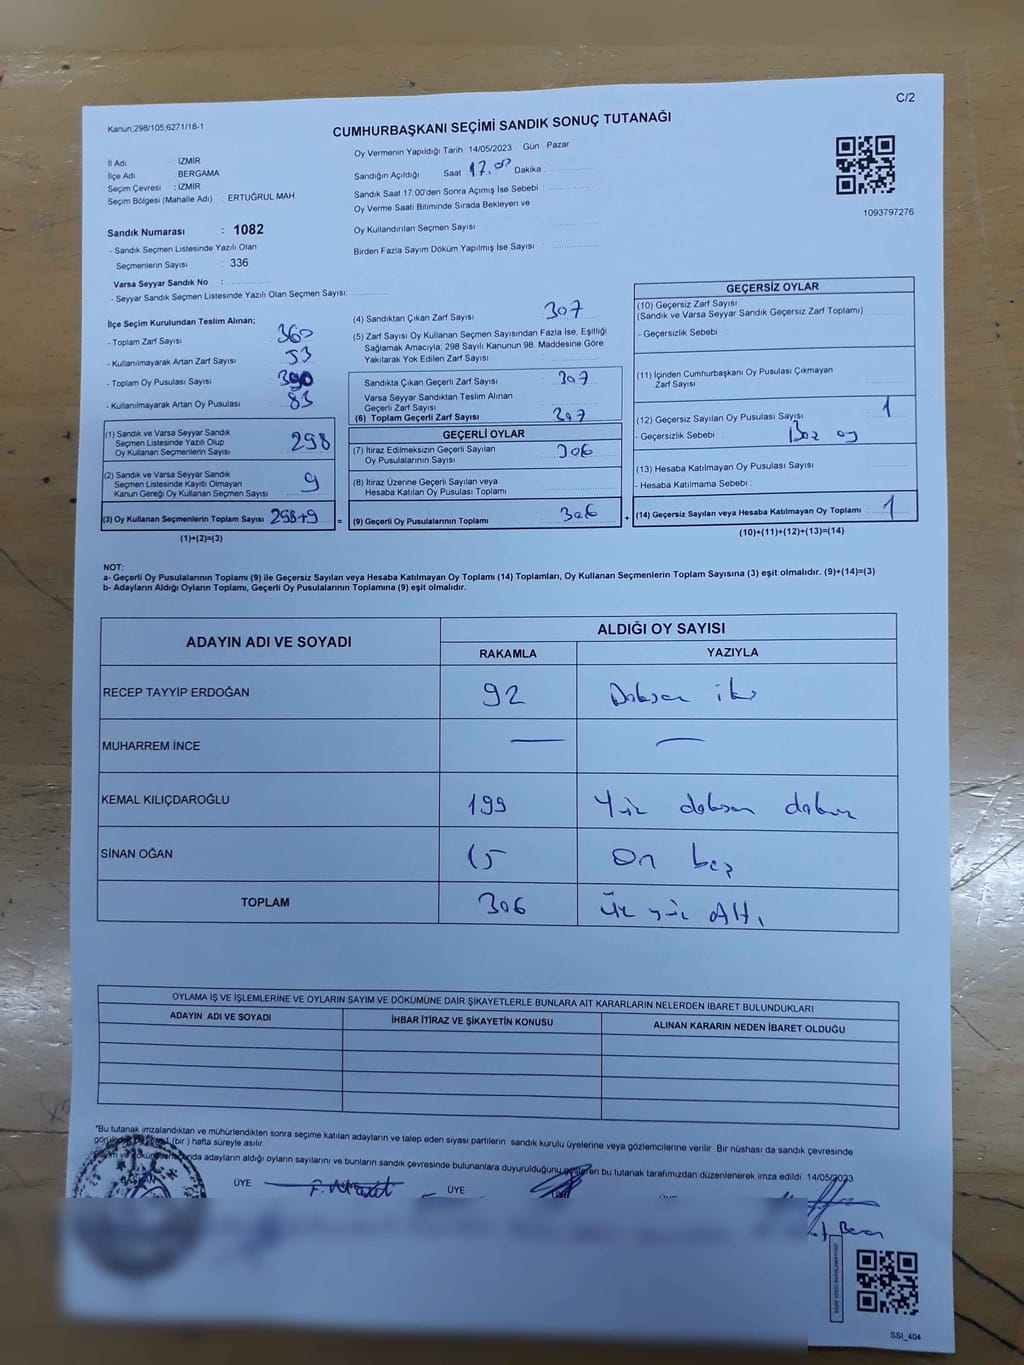 C/2
Kanun:298/105;6271/18-1
CUMHURBAŞKANI SEÇİMİ SANDIK SONUÇ TUTANAĞI
İl Adı : İZMİR
İlçe Adı : BERGAMA
Seçim Çevresi : İZMİR
Seçim Bölgesi (Mahalle Adı) : ERTUĞRUL MAH.
Sandık Numarası : 1082
- Sandık Seçmen Listesinde Yazılı Olan
Seçmenlerin Sayısı : 336
Varsa Seyyar Sandık No :
- Seyyar Sandık Seçmen Listesinde Yazılı Olan Seçmen Sayısı:
Oy Vermenin Yapıldığı Tarih : 14/05/2023 Gün : Pazar
Sandığın Açıldığı Saat 17.00 Dakika :
Sandık Saat 17:00'den Sonra Açımış İse Sebebi :
Oy Verme Saati Bitiminde Sırada Bekleyen ve
Oy Kullandırılan Seçmen Sayısı :
Birden Fazla Sayım Döküm Yapılmış İse Sayısı :
1093797276
İlçe Seçim Kurulundan Teslim Alınan;
- Toplam Zarf Sayısı : 360
- Kullanılmayarak Artan Zarf Sayısı : 53
- Toplam Oy Pusulası Sayısı : 390
- Kullanılmayarak Artan Oy Pusulası : 83
(1) Sandık ve Varsa Seyyar Sandık
Seçmen Listesinde Yazılı Olup
Oy Kullanan Seçmenlerin Sayısı : 298
(2) Sandık ve Varsa Seyyar Sandık
Seçmen Listesinde Kayıtlı Olmayan
Kanun Gereği Oy Kullanan Seçmen Sayısı : 9
(3) Oy Kullanan Seçmenlerin Toplam Sayısı : 298+9 =
(1)+(2)=(3)
(4) Sandıktan Çıkan Zarf Sayısı : 307
(5) Zarf Sayısı Oy Kullanan Seçmen Sayısından Fazla İse, Eşitliği
Sağlamak Amacıyla, 298 Sayılı Kanunun 98. Maddesine Göre
Yakılarak Yok Edilen Zarf Sayısı :
Sandıkta Çıkan Geçerli Zarf Sayısı : 307
Varsa Seyyar Sandıktan Teslim Alınan
Geçerli Zarf Sayısı :
(6) Toplam Geçerli Zarf Sayısı : 307
GEÇERLİ OYLAR
(7) İtiraz Edilmeksizin Geçerli Sayılan
Oy Pusulalarının Sayısı : 306
(8) İtiraz Üzerine Geçerli Sayılan veya
Hesaba Katılan Oy Pusulası Toplamı :
(9) Geçerli Oy Pusulalarının Toplamı : 306 +
GEÇERSİZ OYLAR
(10) Geçersiz Zarf Sayısı
(Sandık ve Varsa Seyyar Sandık Geçersiz Zarf Toplamı) :
- Geçersizlik Sebebi :
(11) İçinden Cumhurbaşkanı Oy Pusulası Çıkmayan
Zarf Sayısı :
(12) Geçersiz Sayılan Oy Pusulası Sayısı : 1
- Geçersizlik Sebebi : Boz oy
(13) Hesaba Katılmayan Oy Pusulası Sayısı :
- Hesaba Katılmama Sebebi :
(14) Geçersiz Sayılan veya Hesaba Katılmayan Oy Toplamı : 1
(10)+(11)+(12)+(13)=(14)
NOT:
a- Geçerli Oy Pusulalarının Toplamı (9) ile Geçersiz Sayılan veya Hesaba Katılmayan Oy Toplamı (14) Toplamları, Oy Kullanan Seçmenlerin Toplam Sayısına (3) eşit olmalıdır. (9)+(14)=(3)
b- Adayların Aldığı Oyların Toplamı, Geçerli Oy Pusulalarının Toplamına (9) eşit olmalıdır.
ADAYIN ADI VE SOYADI ALDIĞI OY SAYISI
RAKAMLA YAZIYLA
RECEP TAYYİP ERDOĞAN 92 Doksan iki
MUHARREM İNCE — —
KEMAL KILIÇDAROĞLU 199 Yüz doksan dokuz
SİNAN OĞAN 15 On beş
TOPLAM 306 Üç yüz Altı
OYLAMA İŞ VE İŞLEMLERİNE VE OYLARIN SAYIM VE DÖKÜMÜNE DAİR ŞİKAYETLERLE BUNLARA AİT KARARLARIN NELERDEN İBARET BULUNDUKLARI
ADAYIN ADI VE SOYADI İHBAR İTİRAZ VE ŞİKAYETİN KONUSU ALINAN KARARIN NEDEN İBARET OLDUĞU
*Bu tutanak imzalandıktan ve mühürlendikten sonra seçime katılan adayların ve talep eden siyasi partilerin sandık kurulu üyelerine veya gözlemcilerine verilir. Bir nüshası da sandık çevresinde
(bir ) hafta süreyle asılır.
adayların aldığı oyların sayılarını ve bunların sandık çevresinde bulunanlara duyurulduğunu gösteren bu tutanak tarafımızdan düzenlenerek imza edildi. 14/05/2023
BAŞKAN ÜYE ÜYE
SSI_404